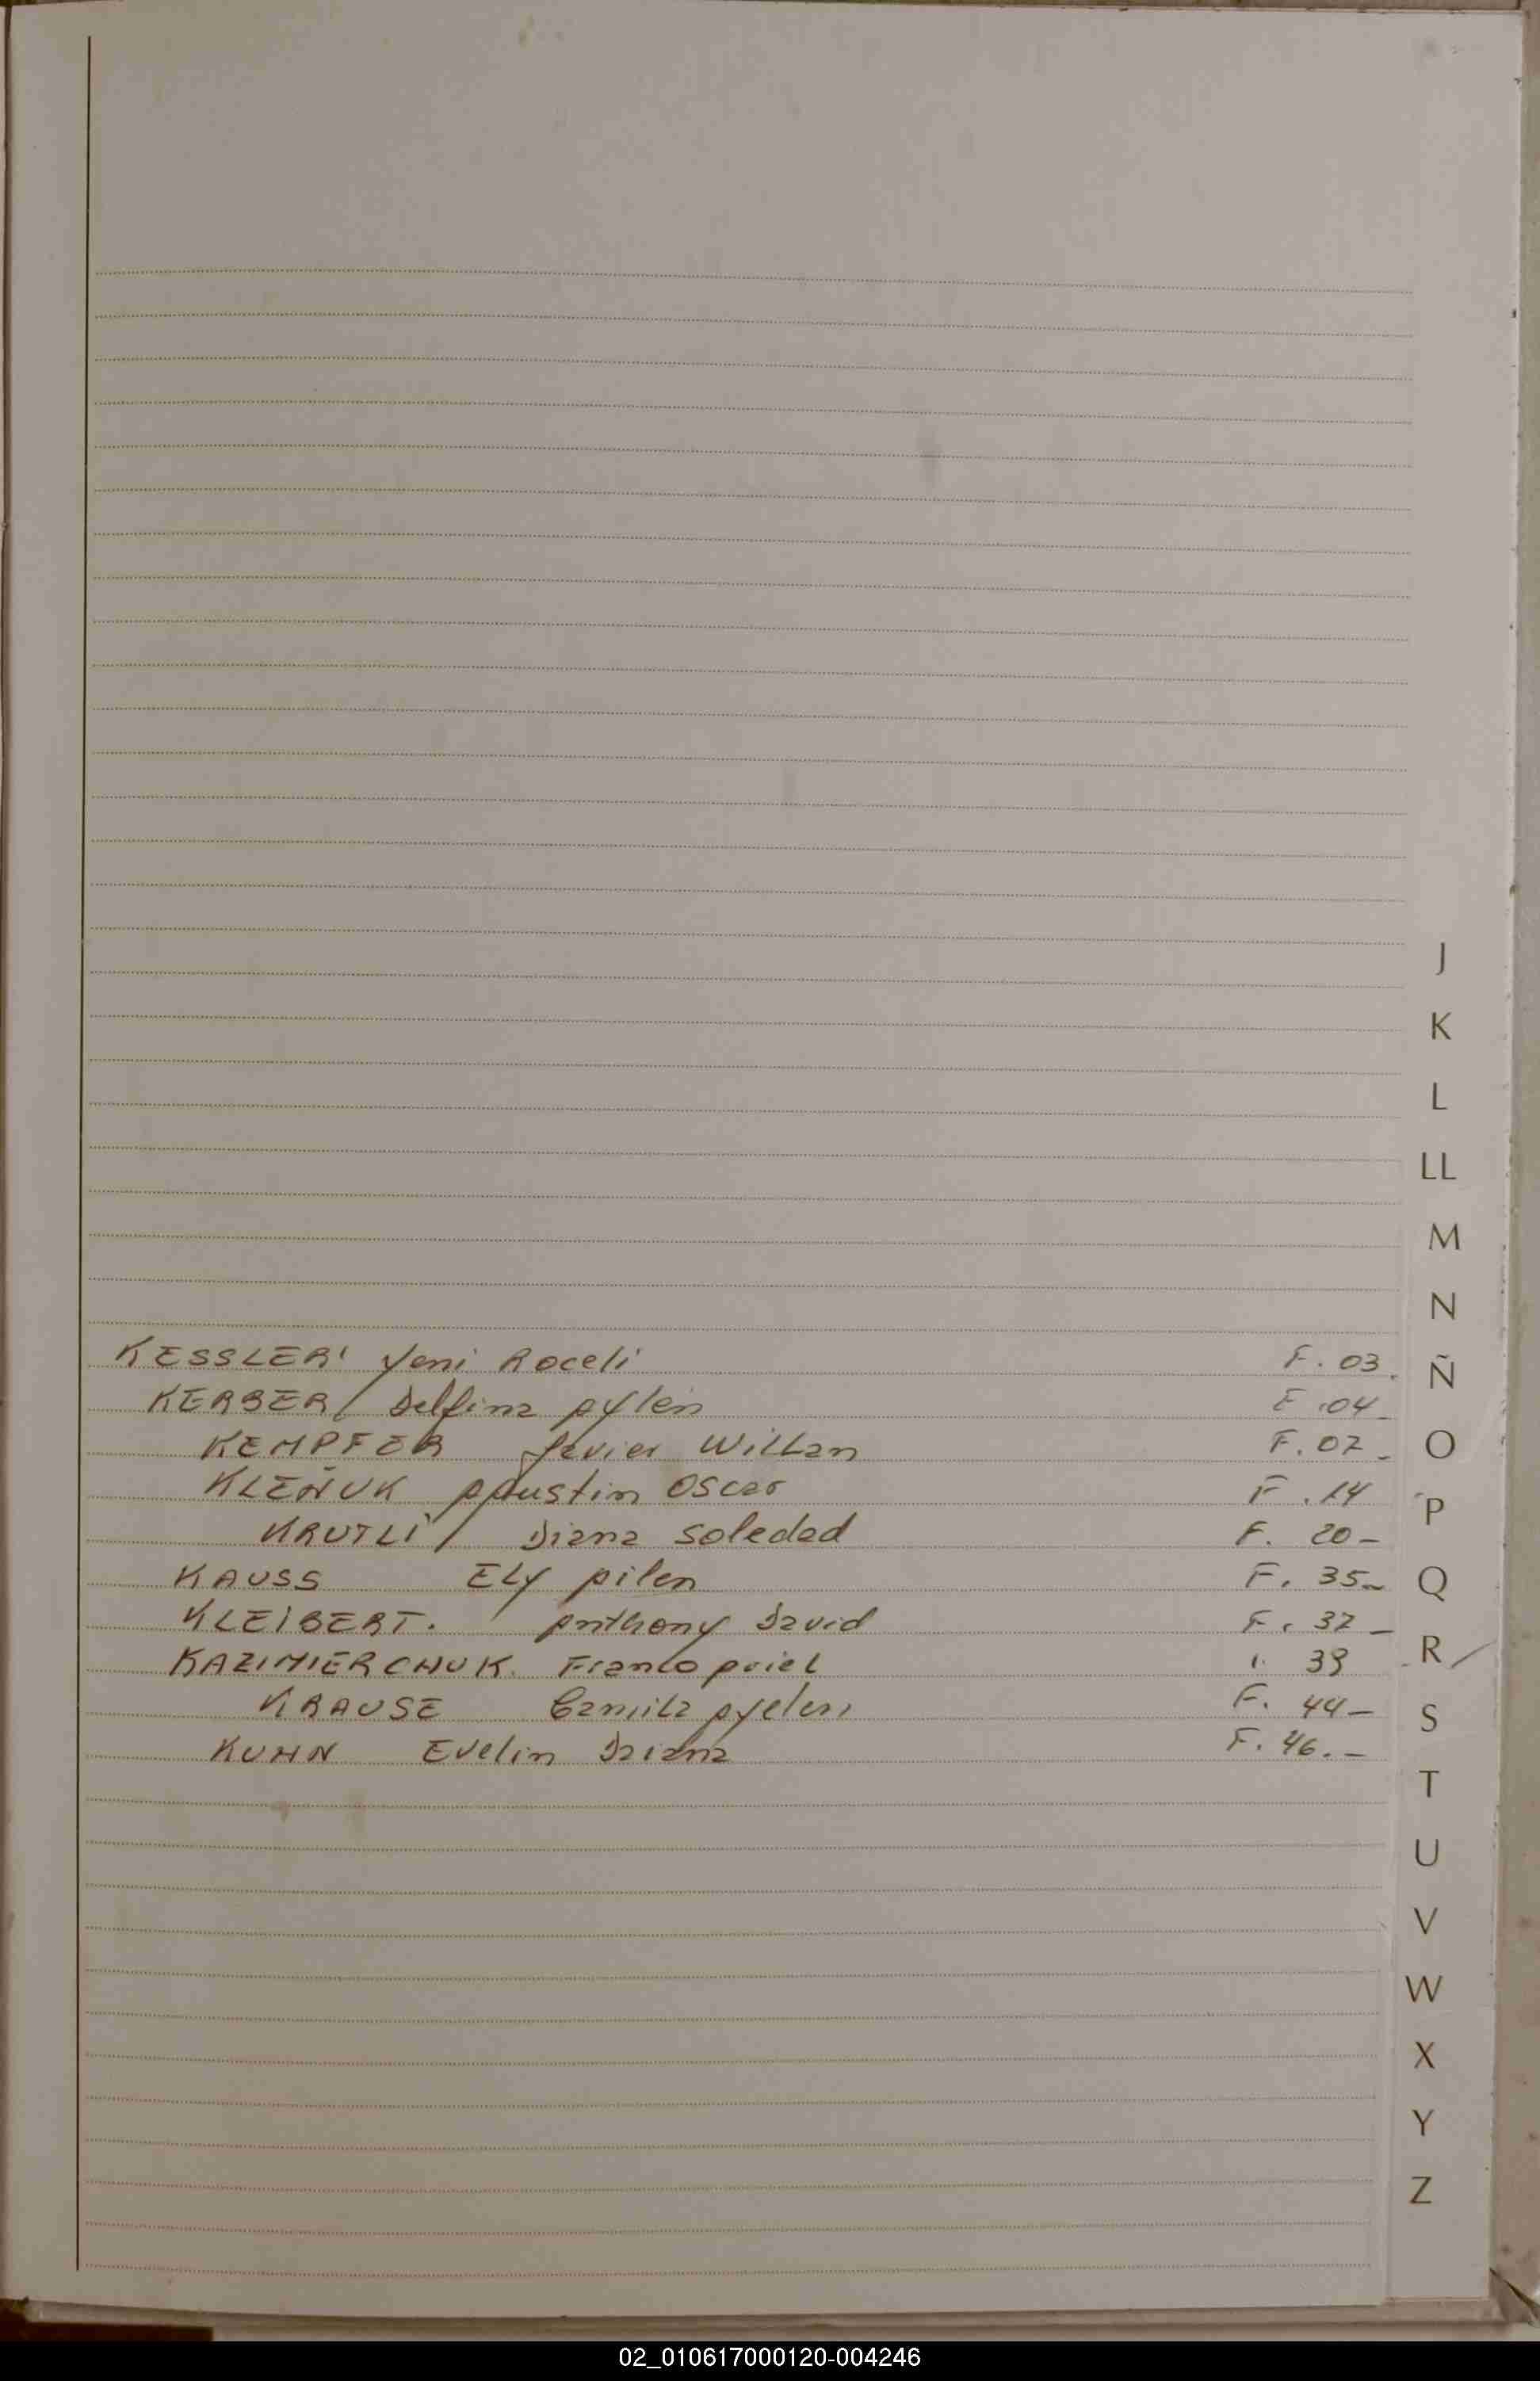 KESSLER' Yeni Roceli F. 03.
KERBER/ Delfina Aylén F. 04-
KEMPFER Javier Willan F. 07-
KLEÑUK Agustin Oscar F. 14
KRUTLI / Diana Soledad F. 20-
KAUSS ELY Ailen F. 35-
KLEIBERT. Anthony David F. 37-
KAZIMIERCHUK. Franco Ariel ". 39
KRAUSE Camila Ayelen F. 44-
KUHN Evelin Daiana F. 46.-
J
K
L
LL
M
N
Ñ
O
P
Q
R
S
T
U
V
W
X
Y
Z
02_010617000120-004246